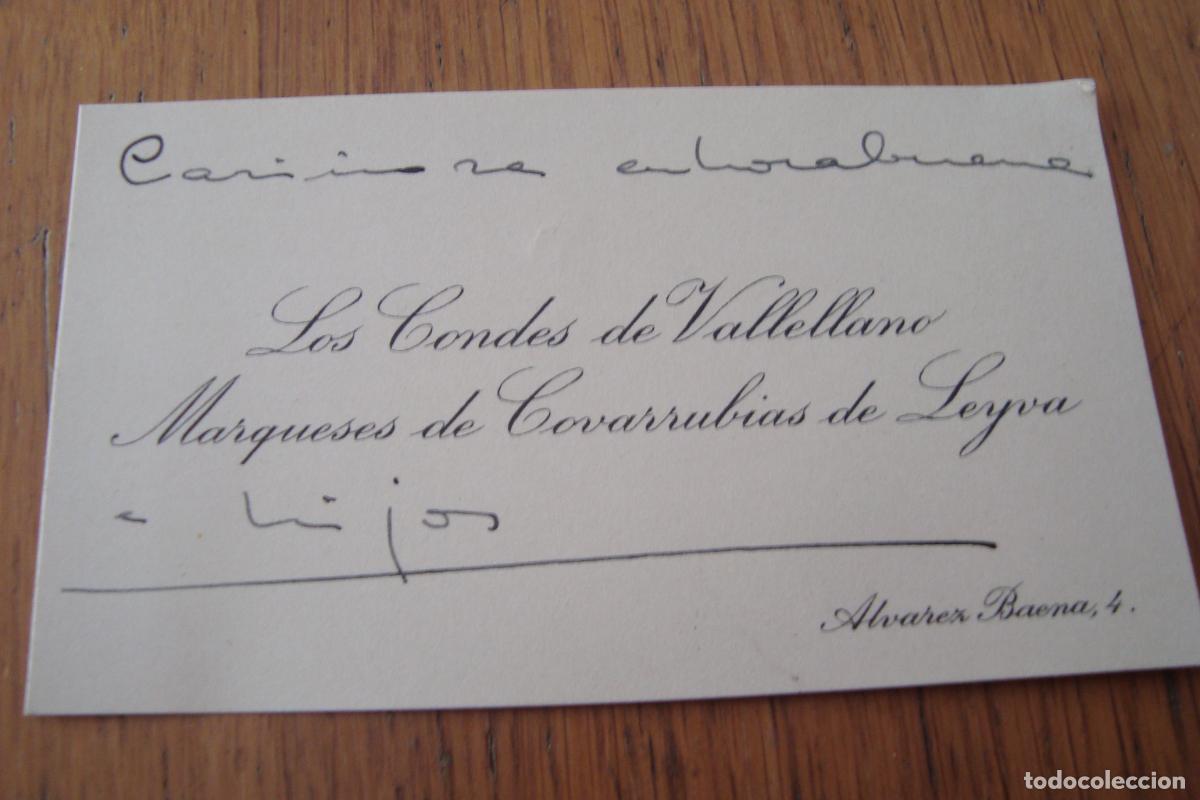 Cariñosa enhorabuena
Los Condes de Vallellano
Marqueses de Covarrubias de Leyva
e hijos
Alvarez Baena, 4.
todocoleccion